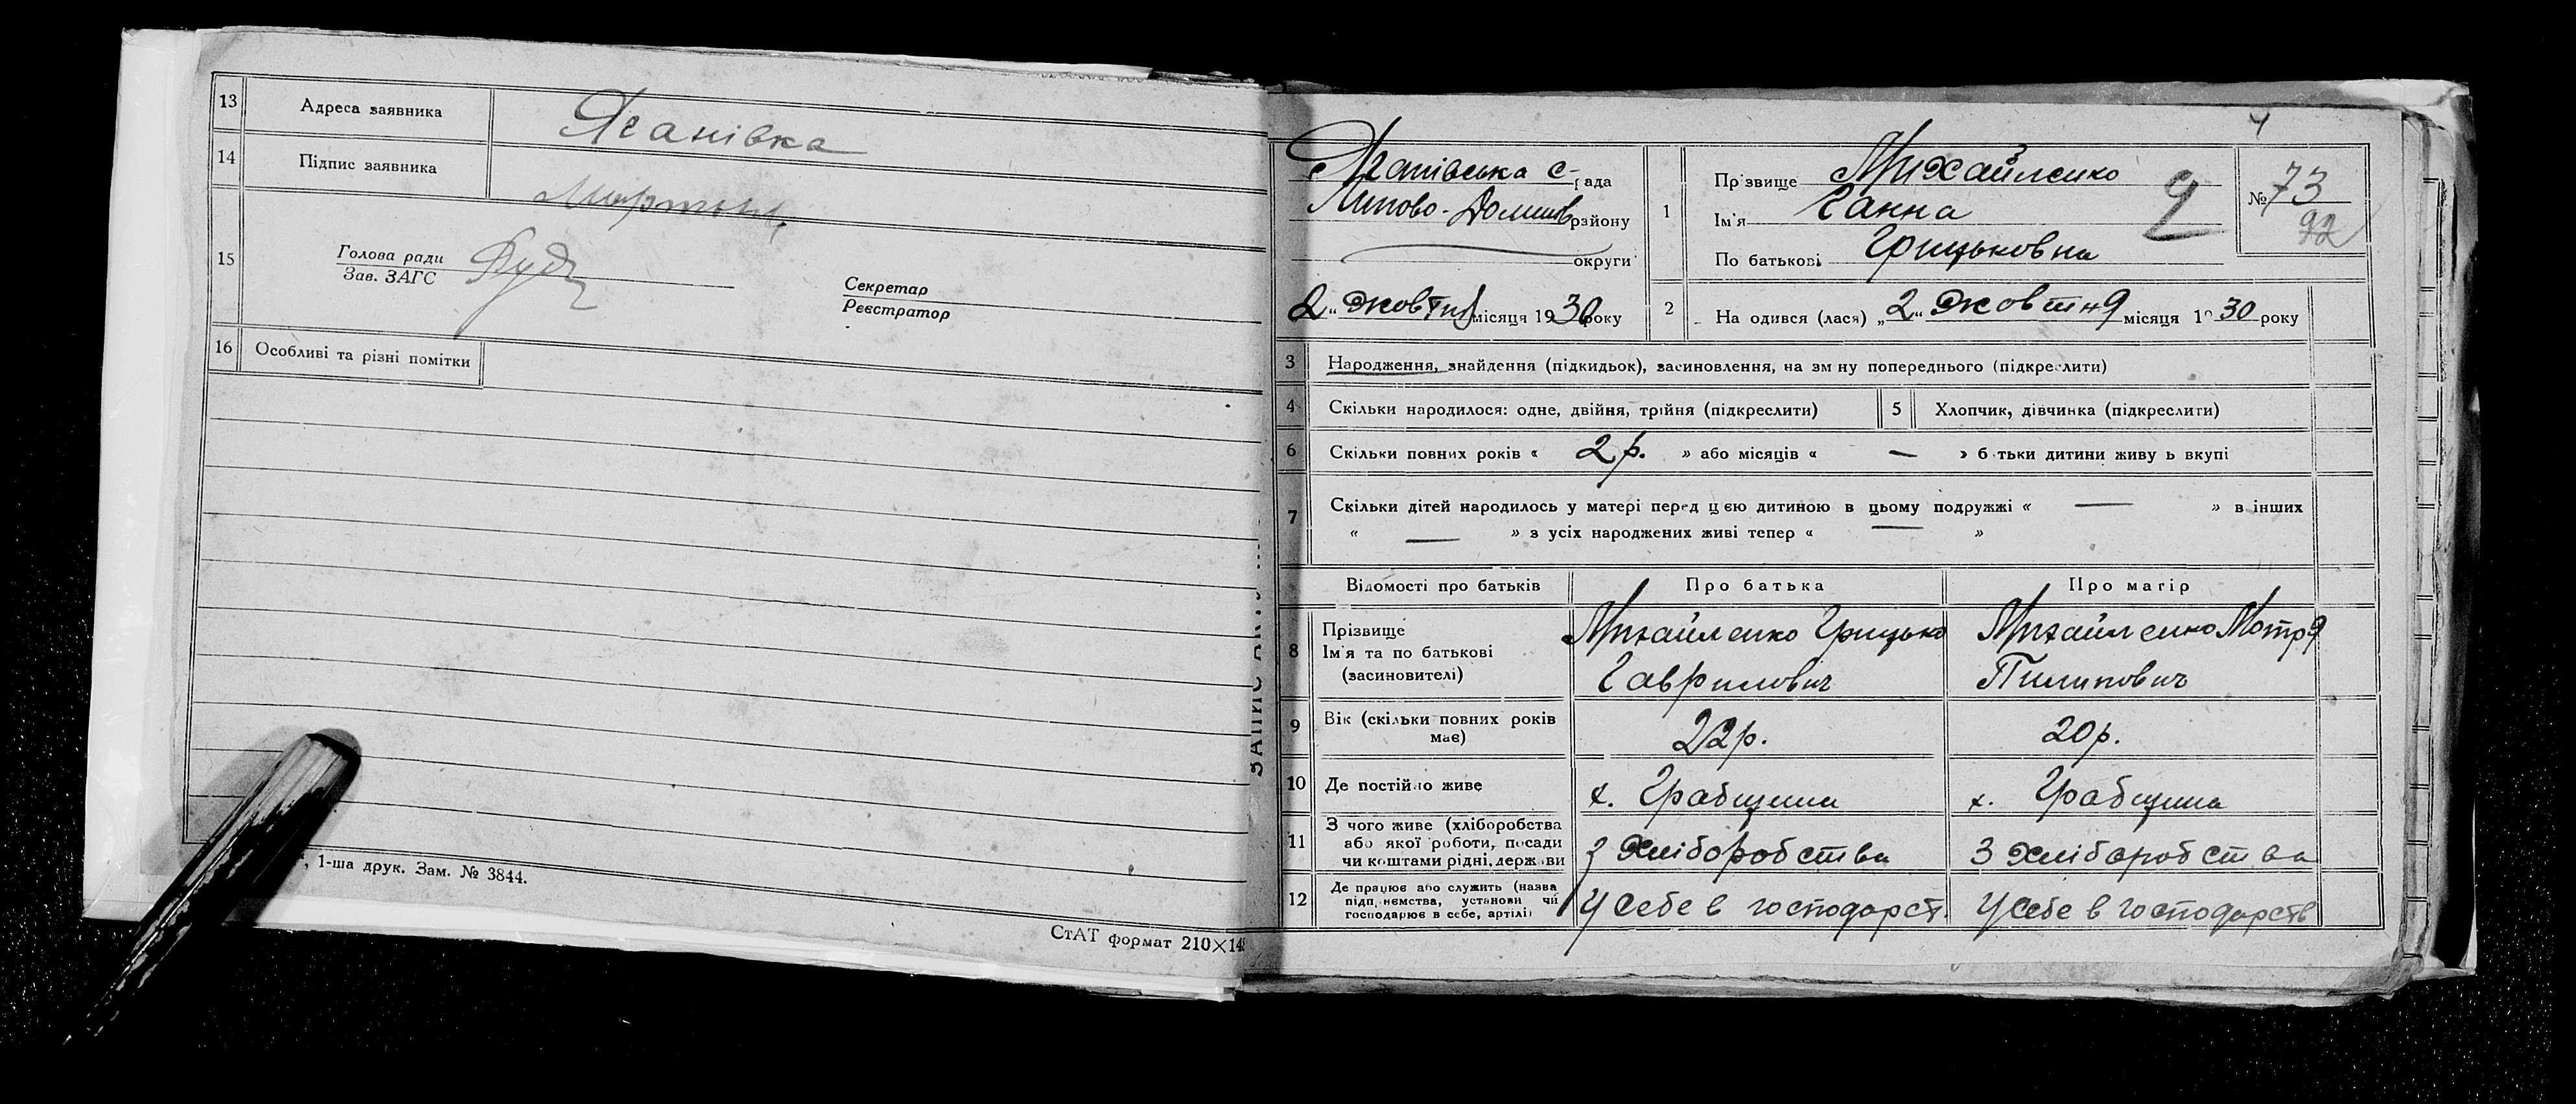 13 Адреса заявника Яганівка
14 Підпис заявника
15 Голова ради
Зав. ЗАГС
Секретар
Реєстратор
16 Особливі та різні помітки
1-ша друк. Зам. № 3844.
СтАТ формат 210×148
ЗАПИС АКТ
Яганівська с-рада
Липово-Долинс району
округи
"2" жовтня місяця 1930 року
1 Прізвище Михайленко
Ім'я Ганна
По батькові Грицьковна
2
№ 73
92
2 Народився (лася) „2" жовтня місяця 1930 року
3 Народження, знайдення (підкидьок), засиновлення, на зміну попереднього (підкреслити)
4 Скільки народилося: одне, двійня, трійня (підкреслити) 5 Хлопчик, дівчинка (підкреслити)
6 Скільки повних років « 2 р. » або місяців « — » батьки дитини живуть вкупі
7 Скільки дітей народилось у матері перед цією дитиною в цьому подружжі « — » в інших
« — » з усіх народжених живі тепер « — »
Відомості про батьків Про батька Про матір
8 Прізвище
Ім'я та по батькові
(засиновителі)
Михайленко Грицько
Гаврилович
Михайленко Мотря
Пилипович
9 Вік (скільки повних років
має) 22 р. 20 р.
10 Де постійно живе х. Грабщина х. Грабщина
11 З чого живе (хліборобства
або якої роботи, посади
чи коштами рідні, держави
З хліборобства З хліборобства
12 Де працює або служить (назва
підприємства, установи чи
господарює в себе, артілі)
У себе в господарст. У себе в господарств